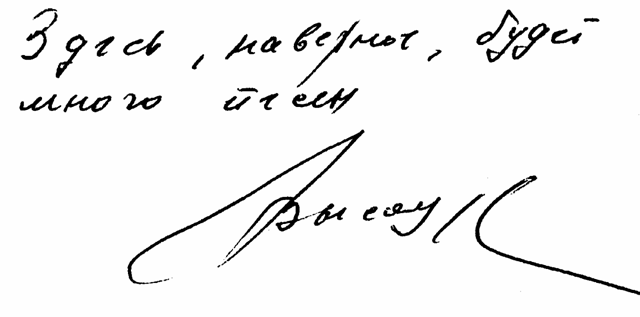 Здесь, наверное, будет
много песен